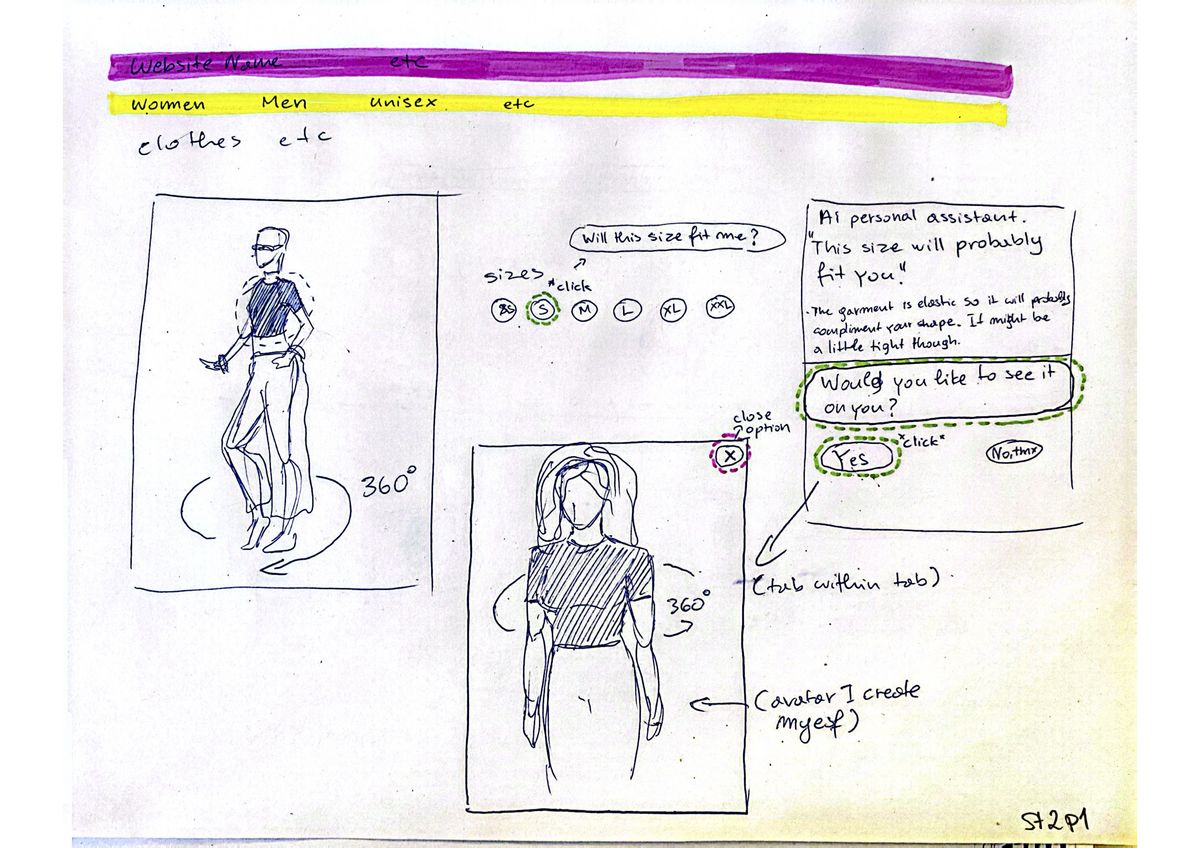 Website Name etc
Women Men unisex etc
clothes etc
360°
Will this size fit me?
sizes
*click
XS S M L XL XXL
Ai personal assistant.
"This size will probably
fit you."
• The garment is elastic so it will probably
compliment your shape. It might be
a little tight though.
Would you like to see it
on you?
Yes
*click*
No, thnx
close
option
X
(tab within tab)
360°
(avatar I create
myself)
St2p1